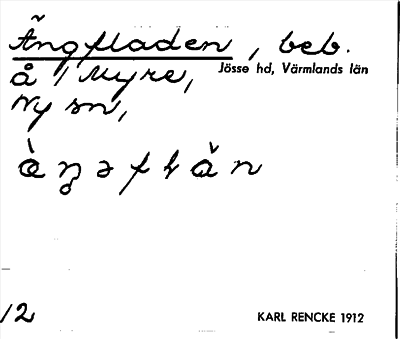 Ängfladen, beb.
å / Myre, Jösse hd, Värmlands län
Ny sn,
12
KARL RENCKE 1912